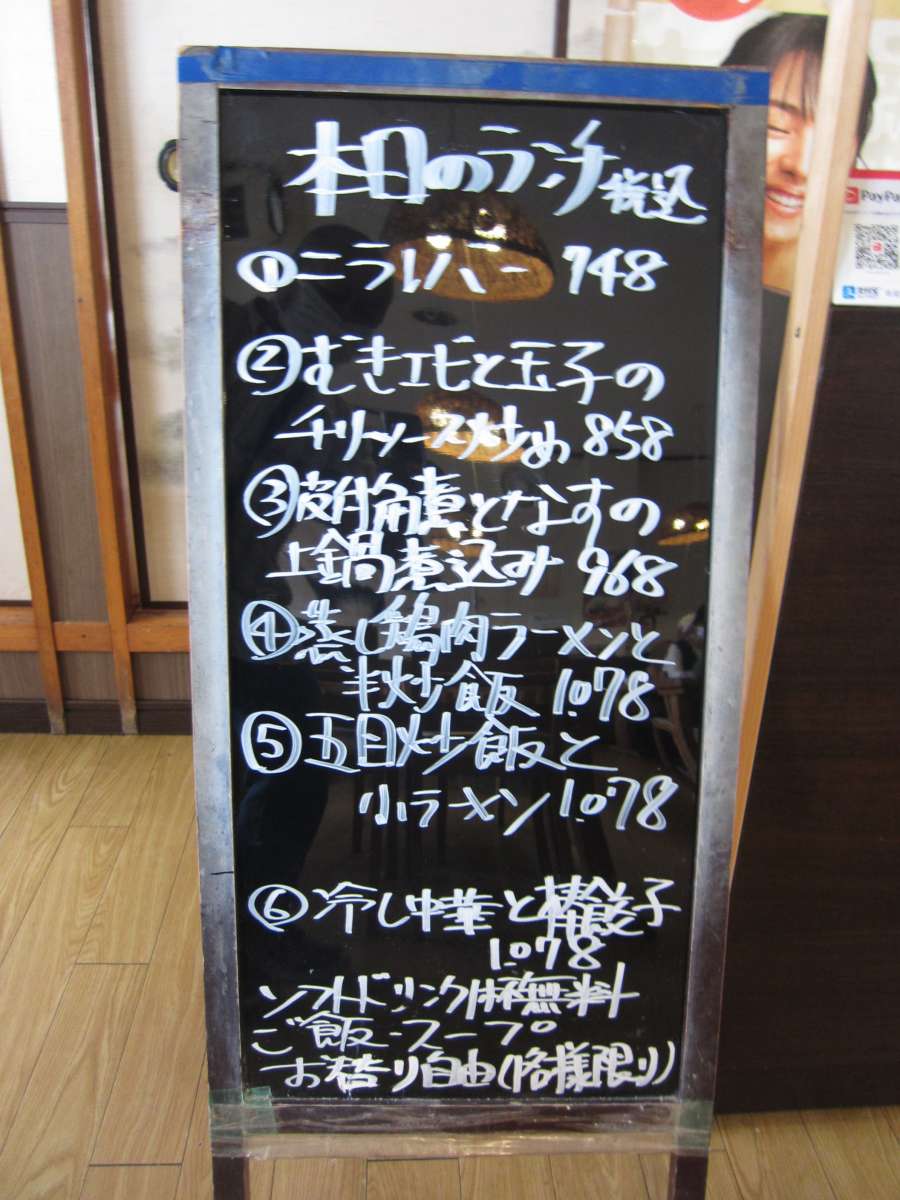 本日のランチ 税込
①ニラレバー 748
②むきエビと玉子の
チリソース炒め 858
③皮付角煮となすの
土鍋煮込み 968
④蒸し鶏肉ラーメンと
半炒飯 1078
⑤五目炒飯と
小ラーメン 1078
⑥冷し中華と棒餃子
1078
ソフトドリンク1杯無料
ご飯・スープ
お替り自由(1名様限り)
PayPay